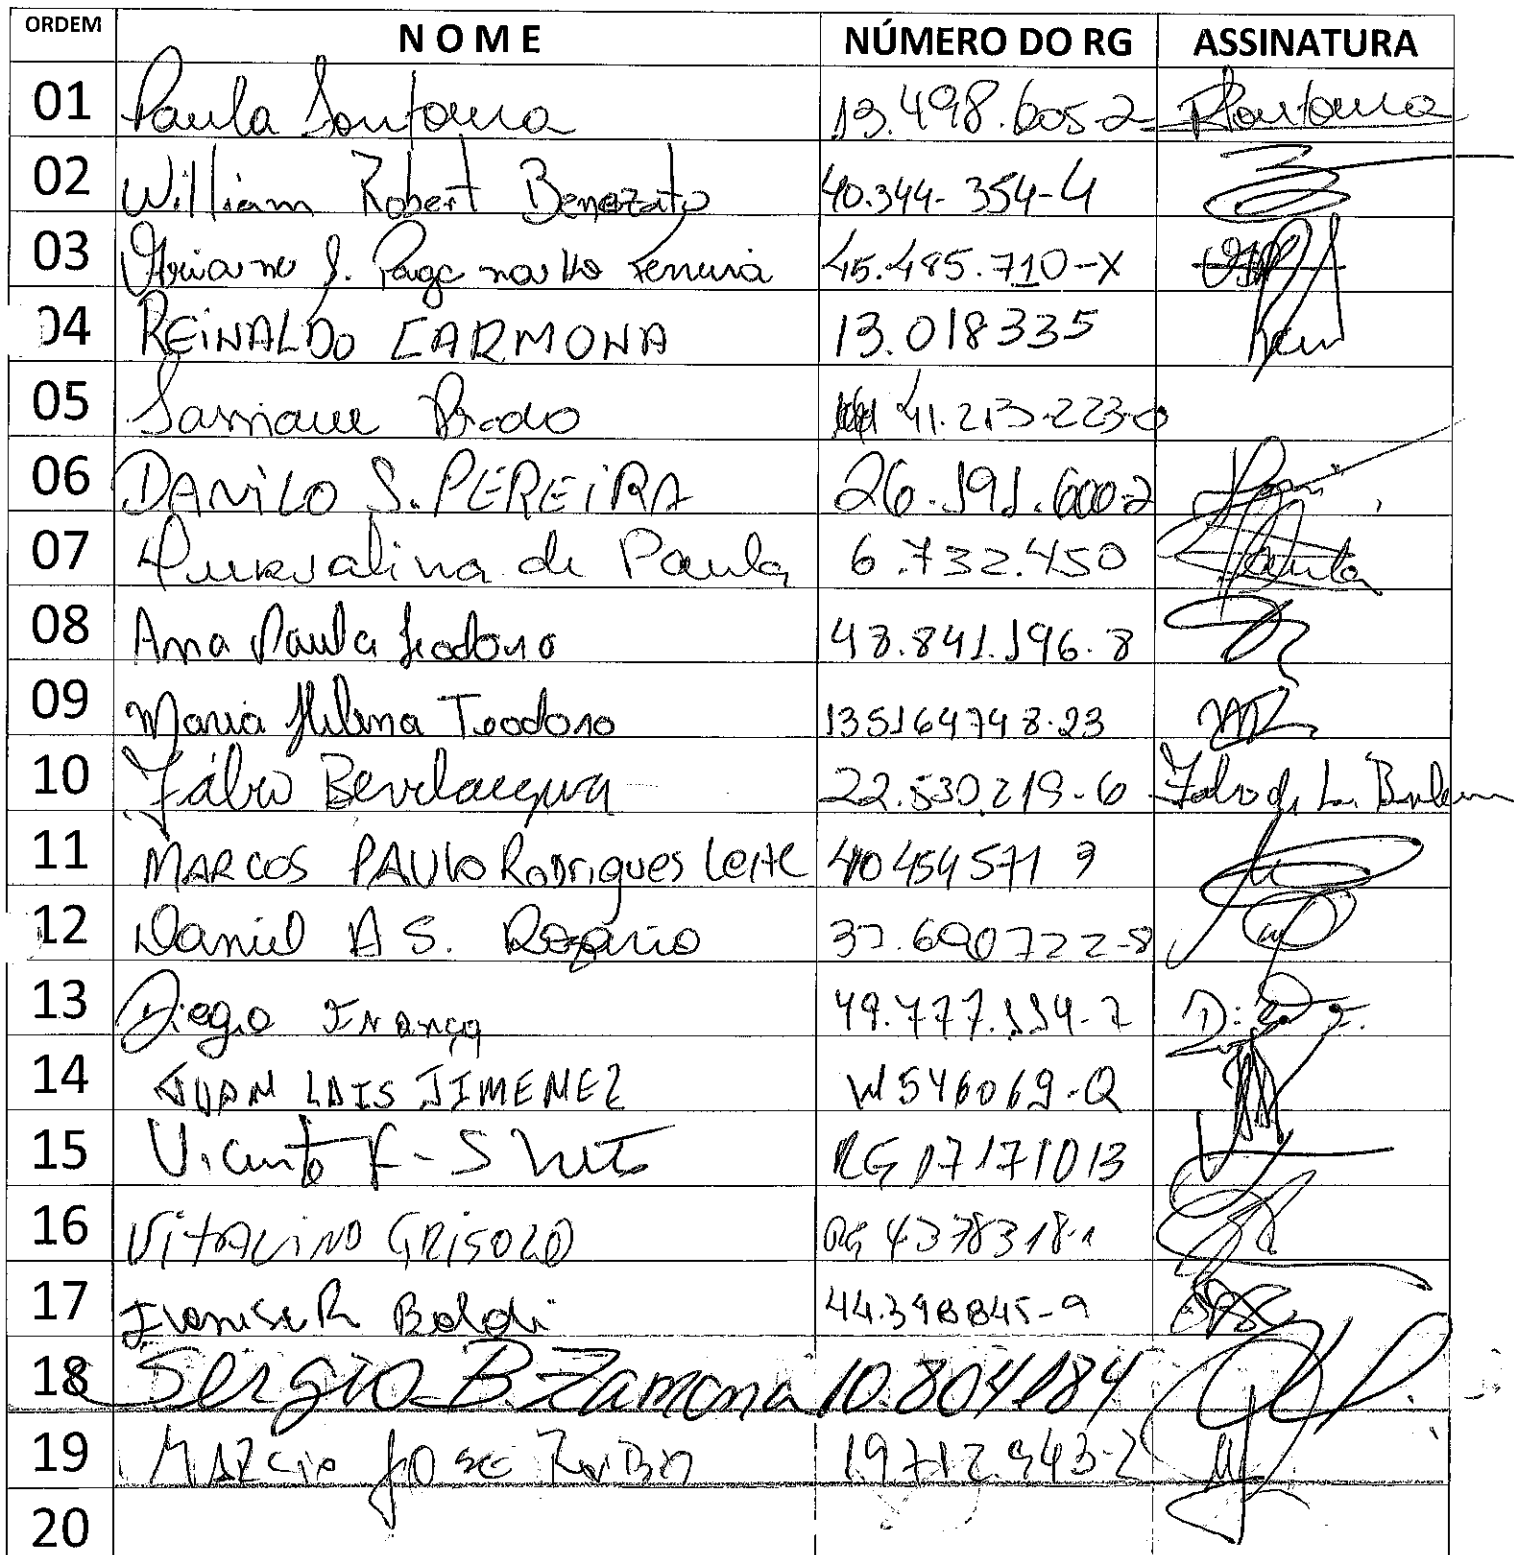 ORDEM NOME NÚMERO DO RG ASSINATURA
01 Paula Santana 13.498.605-2 PSantana
02 William Robert Benezato 40.344-354-4
03 Ariane J. Ferreira 45.485.710-X
04 REINALDO CARMONA 13.018335
05 Prado 41.213-223-0
06 DANILO S. PEREIRA 26.191.600-2
07 Durvalina de Paula 6.732.450
08 Ana Paula Teodoro 43.841.196.8
09 Maria Helena Teodoro 135164748-23
10 Fábio Bevelacqua 22.530.219-6
11 MARCOS PAULO Rodrigues Leite 40 454 571 9
12 Daniel A S. Rozario 37.690722-8
13 Diego França 49.777.334-2
14 JUAN LUIS JIMENEZ W546069-Q
15 Vicente F-S Neto RG 17171013
16 VITALINO GRISOLO RG 4378318-1
17 R Baldi 44.398845-9
18 Sergio B. Zamona 10.804184
19 Marcio José Rubin 19.712.943-2
20